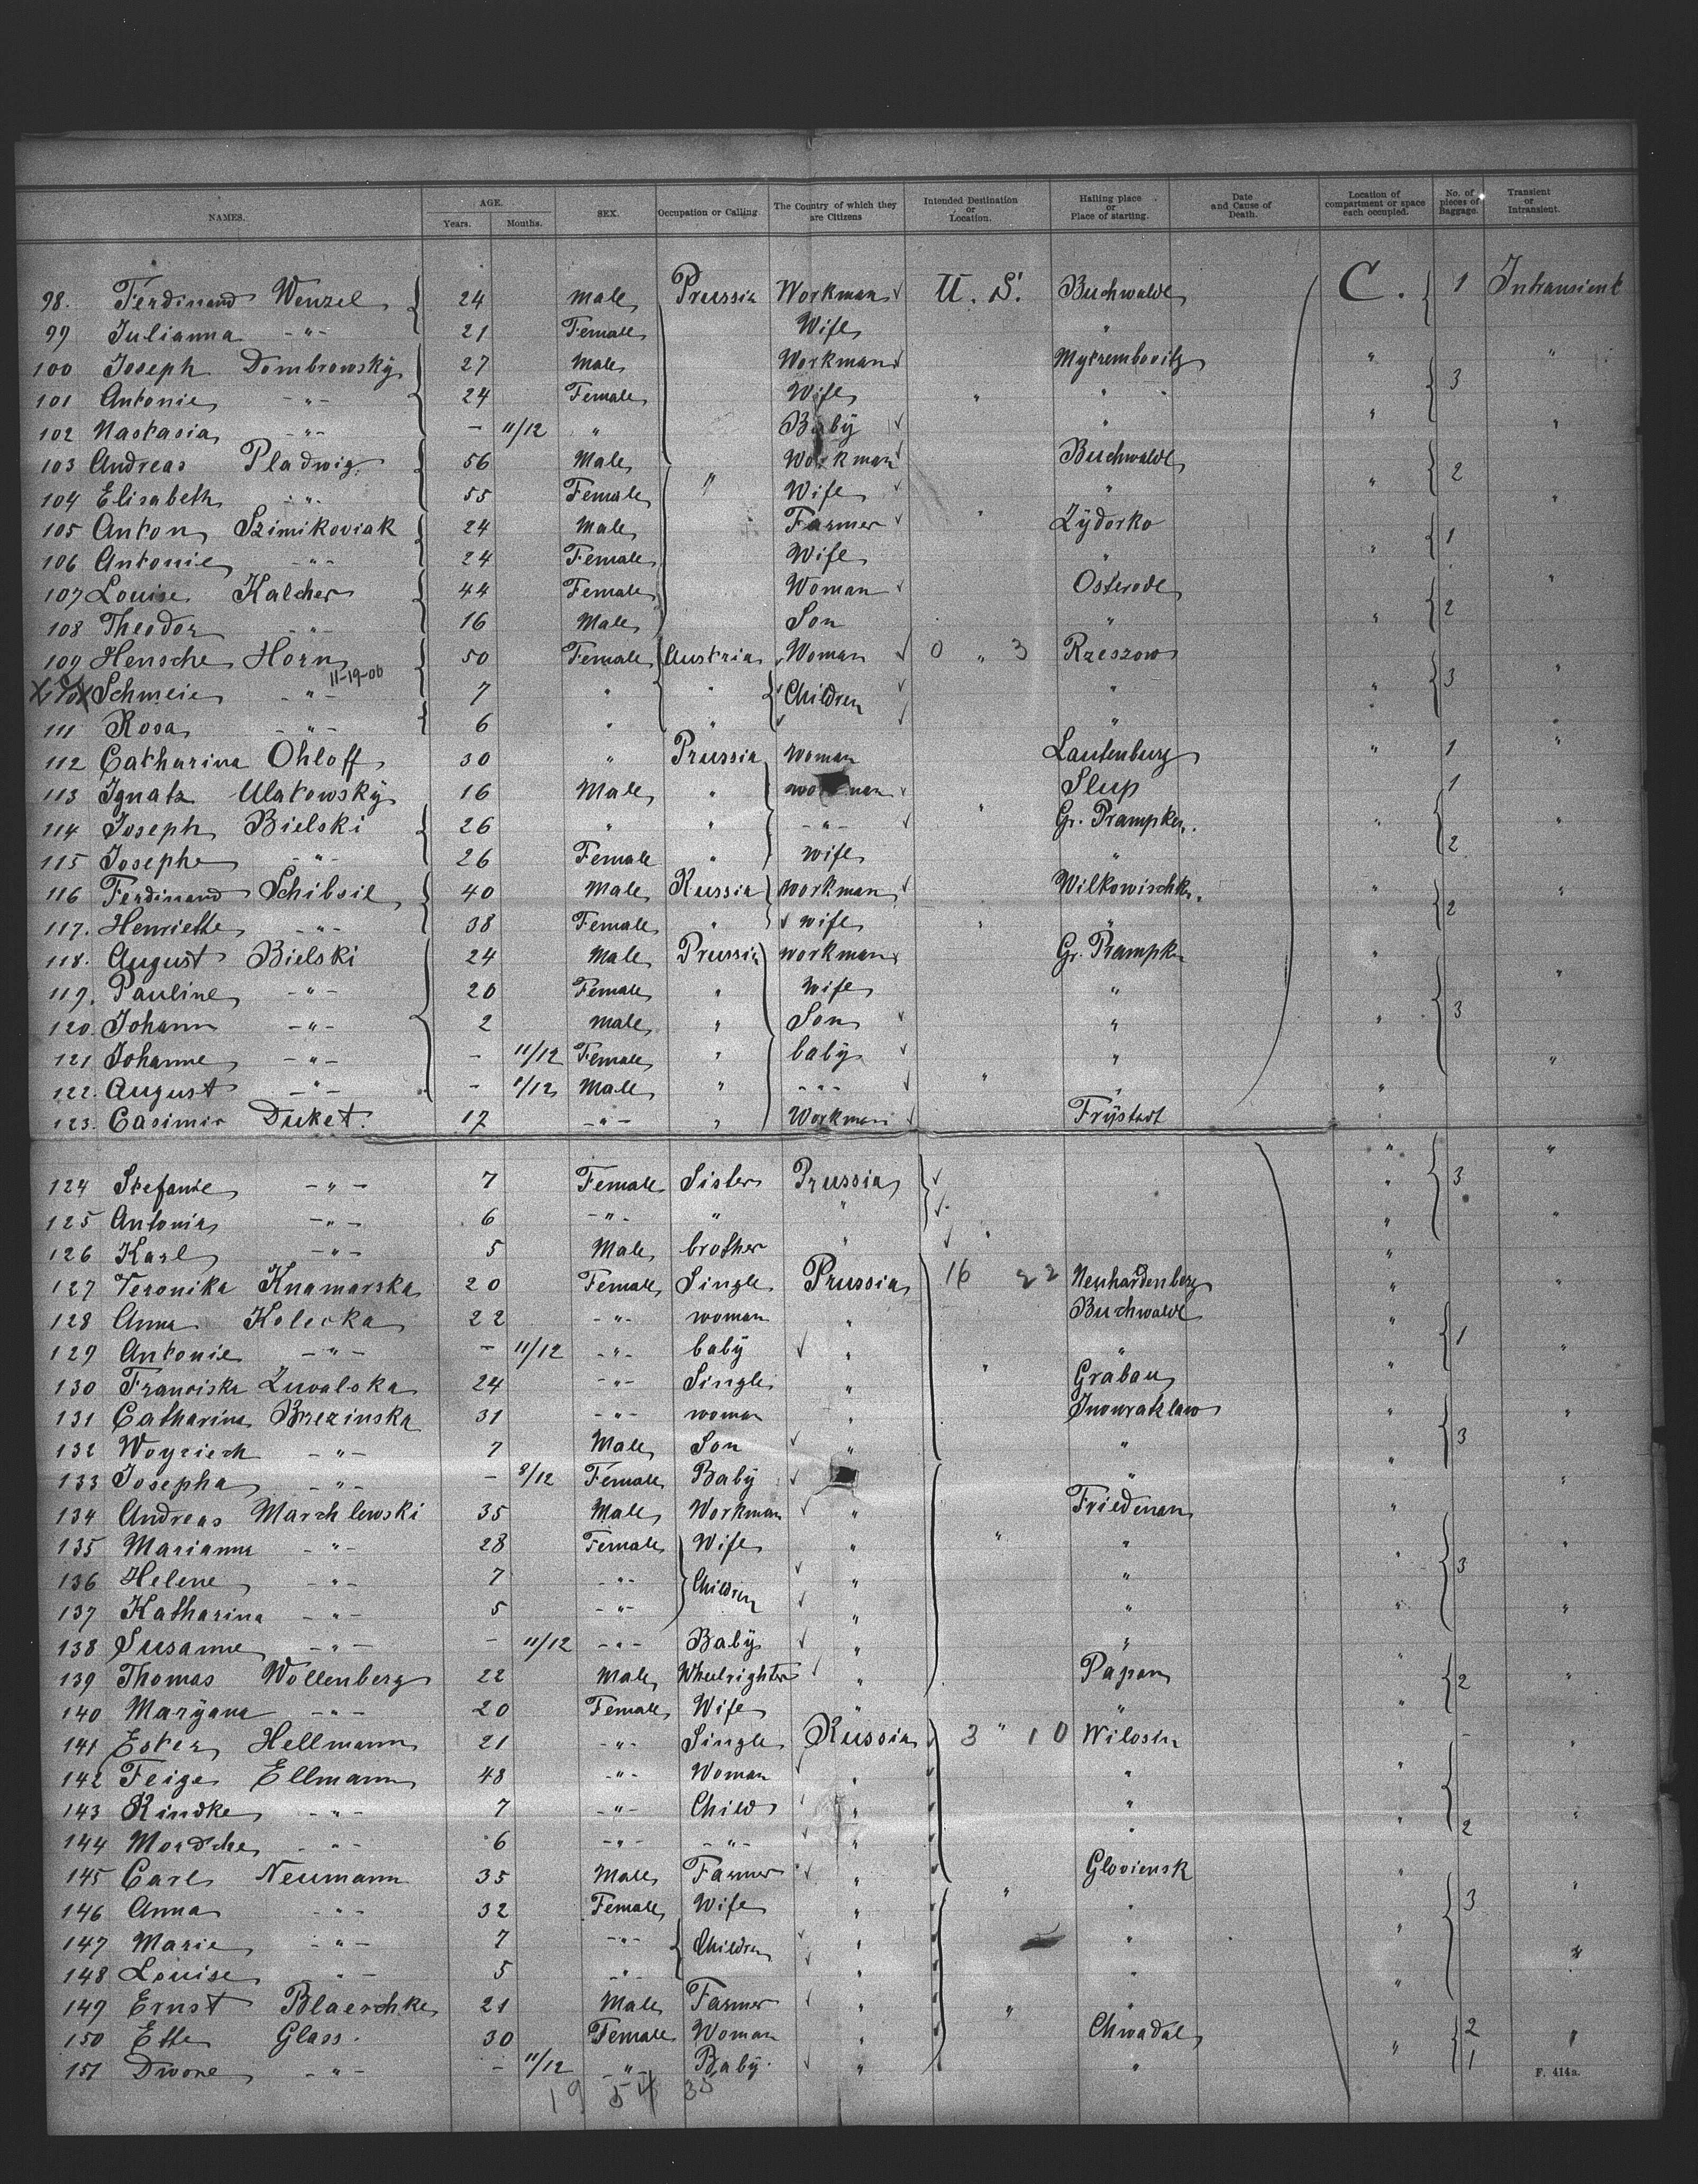 NAMES. AGE. Years. Months. SEX. Occupation or Calling The Country of which they are Citizens Intended Destination or Location. Halling place or Place of starting. Date and Cause of Death. Location of compartment or space each occupied. No. of pieces of Baggage. Transient or Intransient.
98. Ferdinand Wenzel 24 Male Prussia Workman U. S. Buchwalde C. 1 Intransient
99 Julianna -"- 21 Female Wife "
100 Joseph Dombrowsky 27 Male Workman " "
101 Antonie -"- 24 Female Wife " " 3
102 Nastasia -"- - 11/12 " Baby " " "
103 Andreas Pladwig 56 Male Workman Buchwalde 2
104 Elisabeth -"- 55 Female " Wife " " "
105 Anton Szimikoviak 24 Male Farmer " Zÿdorko 1
106 Antonie -"- 24 Female Wife " "
107 Louise Kalcher 44 Female Woman Osterode "
108 Theodor -"- 16 Male Son " " 2
109 Hensche Horn 50 Female Austria Woman 0 " 3 Rzeszow "
110 Schmeie -"- 11-19-00 7 " " Children " " 3
111 Rosa -"- 6 " " " "
112 Catharina Ohloff 30 " Prussia Woman Lautenburg " 1 "
113 Ignatz Ulatowsky 16 Male " workman Slup 1
114 Joseph Bielski 26 " " -"- " Gr. Prampken. " "
115 Josephe -"- 26 Female " wife " 2
116 Ferdinand Schibsil 40 Male Russia workman Wilkowischk. " "
117. Henriette -"- 38 Female " wife " " 2
118. August Bielski 24 Male Prussia workman Gr. Prampk "
119. Pauline -"- 20 Female " Wife " "
120 Johann -"- 2 male " Son " " 3
121 Johanne -"- - 11/12 Female " baby " "
122. August -"- - Male " -"- " " "
123. Casimir Duket. 17 -"- " Workman Frÿstadt
124 Stefanie -"- 7 Female Sister Prussia " 3
125 Antonia -"- 6 -"- " " " "
126 Karl -"- 5 Male brother " " "
127 Veronika Knamarska 20 Female Single Prussia 16 22 Neuhardenberg " "
128 Anna Kolecka 22 -"- woman " Buchwalde " 1
129 Antonie -"- - 11/12 -"- baby " " "
130 Franciska Zuvalska 24 -"- Single " " Grabau "
131 Catharina Brezinska 31 -"- woman " Inowratzlaw " "
132 Woyciech -"- 7 Male Son " " 3
133 Josepha -"- - 8/12 Female Baby " " "
134 Andreas Marchlewski 35 Male Workman " Friedenau "
135 Marianna -"- 28 Female Wife " " " "
136 Helene -"- 7 -"- Children " " " 3
137 Katharina -"- 5 -"- " " " "
138 Susanne -"- - 11/12 -"- Baby " "
139 Thomas Wollenberg 22 Male Wheelrighter " Papau " 2 "
140 Marÿana -"- 20 Female Wife " " "
141 Ester Hellmann 21 -"- Single Russia 3 " 10 - "
142 Feige Ellmann 48 -"- Woman " " "
143 Rindke -"- 7 -"- Child " " "
144 Mordche -"- 6 -"- -"- " " " 2
145 Carl Neumann 35 Male Farmer " Gloviensk " "
146 Anna -"- 32 Female Wife " " " 3
147 Marie -"- 7 -"- Children " " "
148 Louise -"- 5 -"- " " " "
149 Ernst Blaeschke 21 Male Farmer " "
150 Ette Glass. 30 Female Woman " Chwadal " 2 "
151 Dwore -"- - 11/12 -"- Baby. " " 1
19 54 35
F. 414a.